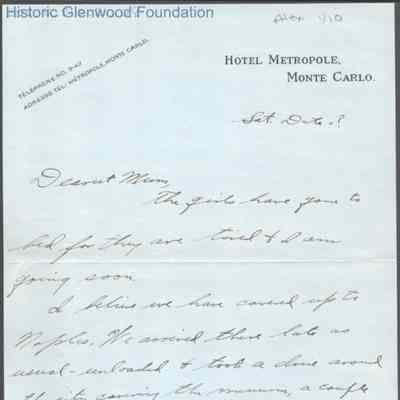 Historic Glenwood Foundation
TELEPHONE NO. 9-47
ADRESSE TÉL: MÉTROPOLE, MONTE CARLO.
HOTEL METROPOLE,
MONTE CARLO.
Sat. Date?
Dearest Mum,
The girls have gone to
bed for they are tired & I am
going soon
I believe we have covered up to
Naples. We arrived there late as
usual - unloaded & took a drive around
the city covering the museum, a couple